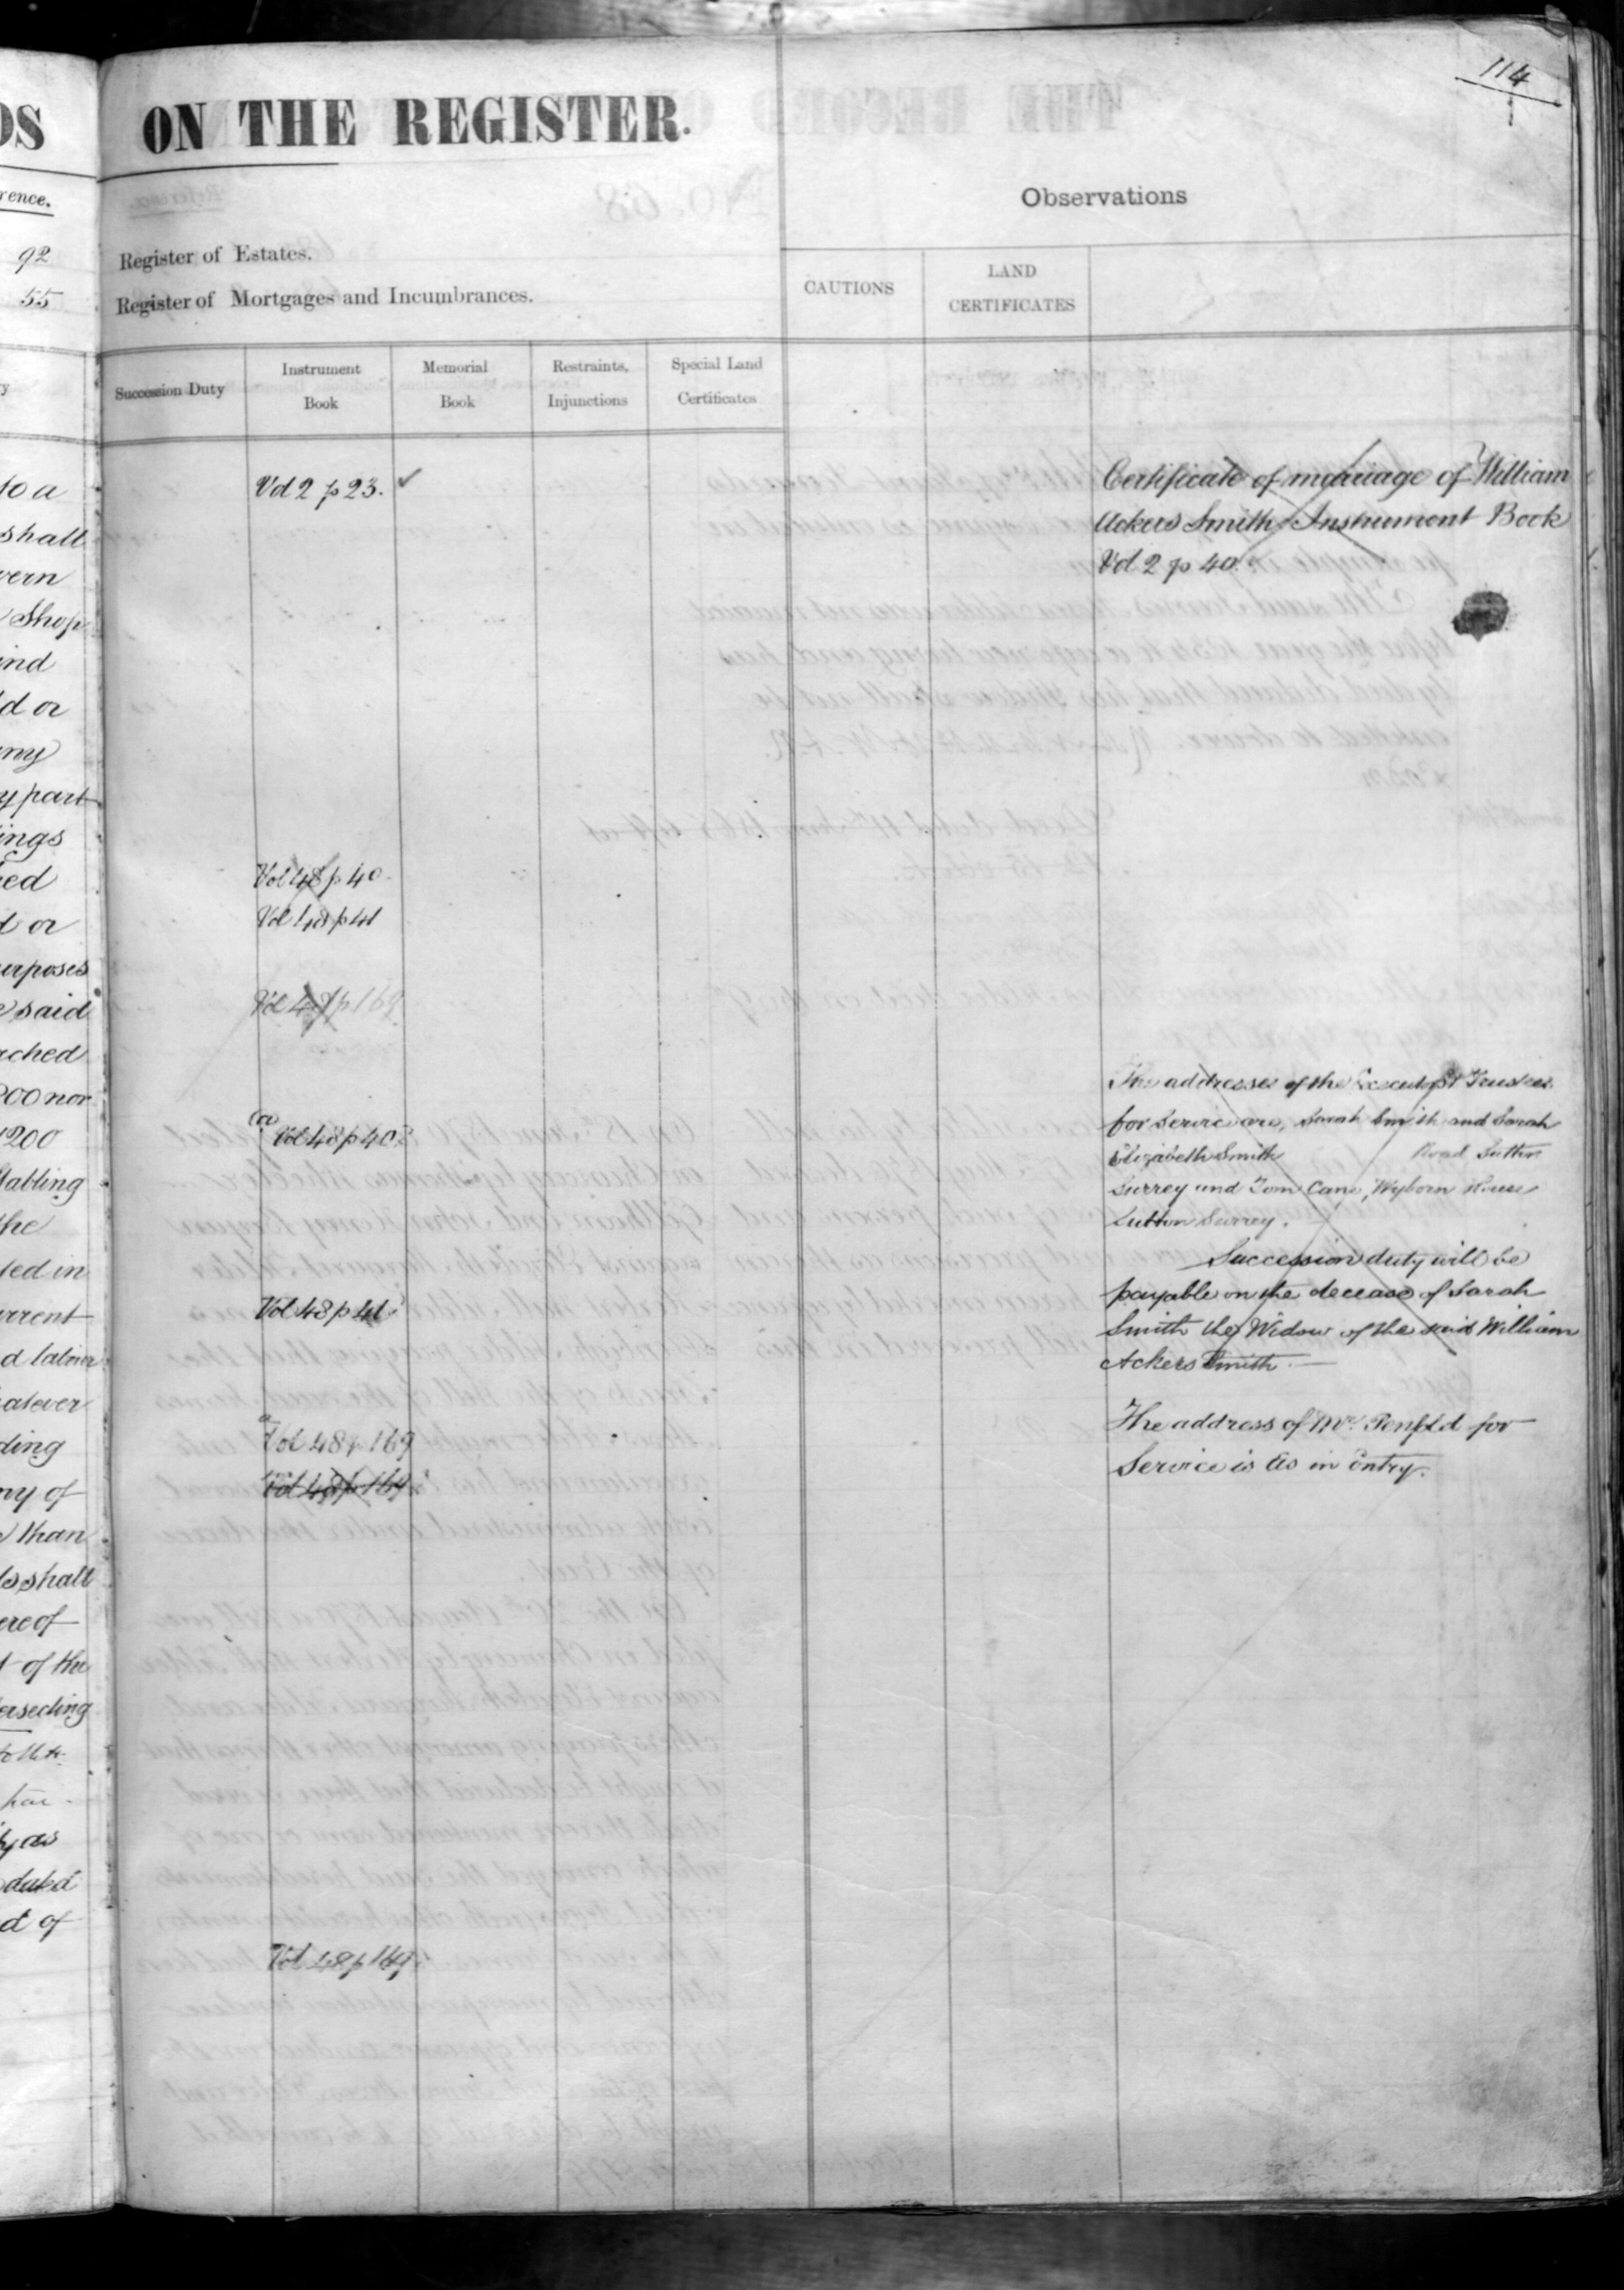 114
DS
ON THE REGISTER.
rence.
92
55
Observations
Register of Estates.
Register of Mortgages and Incumbrances.
CAUTIONS
LAND
CERTIFICATES
Succession Duty
Instrument
Book
Memorial
Book
Restraints,
Injunctions
Special Land
Certificates
to a
shall
vern
Shop
ind
d or
my
y part
ings
ed
d or
urposes
said
ached
200 nor
1200
tabling
the
ted in
urrent
d labour
atever
ding
ny of
than
ls shall
ere of
t of the
ersecting
ty as
duted
d of
Vol 2 p 23.
Vol 48 p 40
Vol 48 p 41
Vol 48 p 169
(a)
Vol 48 p 40
Vol 48 p 41
a
Vol 48 p 169
Vol 48 p 169
Vol 48 p 169
Certificate of marriage of William
Ackers Smith Instrument Book
Vol 2 p 40.
The addresses of the Executors Trustees
for service are, Sarah Smith and Sarah
Elizabeth Smith Road Sutton
Surrey and Tom Cane, Wyborn House
Sutton Surrey.
Succession duty will be
payable on the decease of Sarah
Smith the Widow of the said William
Ackers Smith.
The address of Mr. Penfold for
Service is as in Entry.